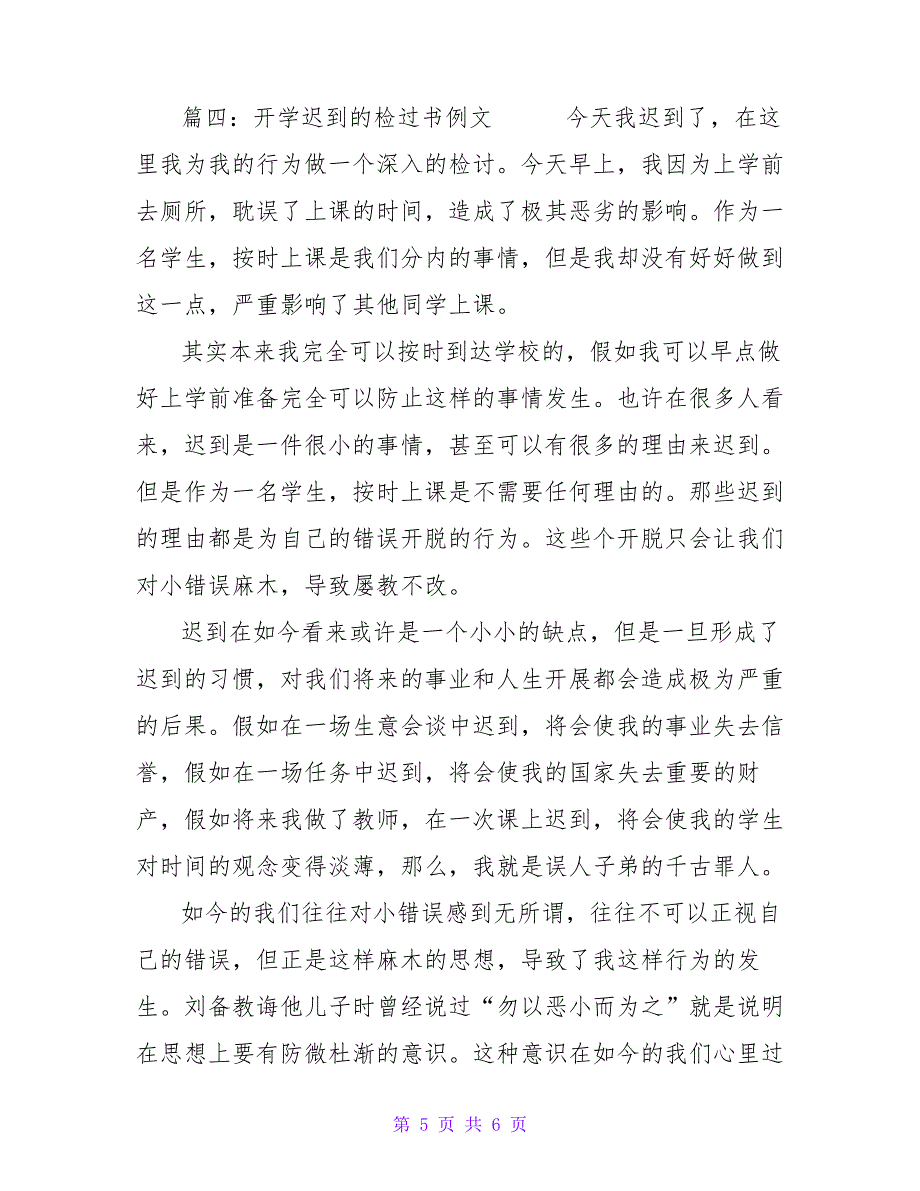 篇四：开学迟到的检过书例文 今天我迟到了，在这
里我为我的行为做一个深入的检讨。今天早上，我因为上学前
去厕所，耽误了上课的时间，造成了极其恶劣的影响。作为一
名学生，按时上课是我们分内的事情，但是我却没有好好做到
这一点，严重影响了其他同学上课。
其实本来我完全可以按时到达学校的，假如我可以早点做
好上学前准备完全可以防止这样的事情发生。也许在很多人看
来，迟到是一件很小的事情，甚至可以有很多的理由来迟到。
但是作为一名学生，按时上课是不需要任何理由的。那些迟到
的理由都是为自己的错误开脱的行为。这些个开脱只会让我们
对小错误麻木，导致屡教不改。
迟到在如今看来或许是一个小小的缺点，但是一旦形成了
迟到的习惯，对我们将来的事业和人生开展都会造成极为严重
的后果。假如在一场生意会谈中迟到，将会使我的事业失去信
誉，假如在一场任务中迟到，将会使我的国家失去重要的财
产，假如将来我做了教师，在一次课上迟到，将会使我的学生
对时间的观念变得淡薄，那么，我就是误人子弟的千古罪人。
如今的我们往往对小错误感到无所谓，往往不可以正视自
己的错误，但正是这样麻木的思想，导致了我这样行为的发
生。刘备教诲他儿子时曾经说过“勿以恶小而为之”就是说明
在思想上要有防微杜渐的意识。这种意识在如今的我们心里过
第 5 页 共 6 页